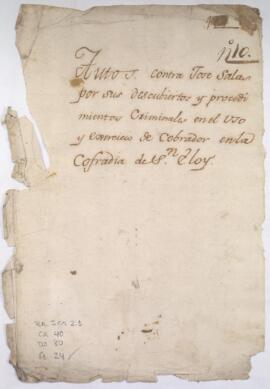 nº 10.
Autos contra Jose Salas
por sus descubiertos y procedi
mientos Criminales en el Uso
y Exercicio de Cobrador en la
Cofradia de Sn Eloy.
CA 40
DO 80
24